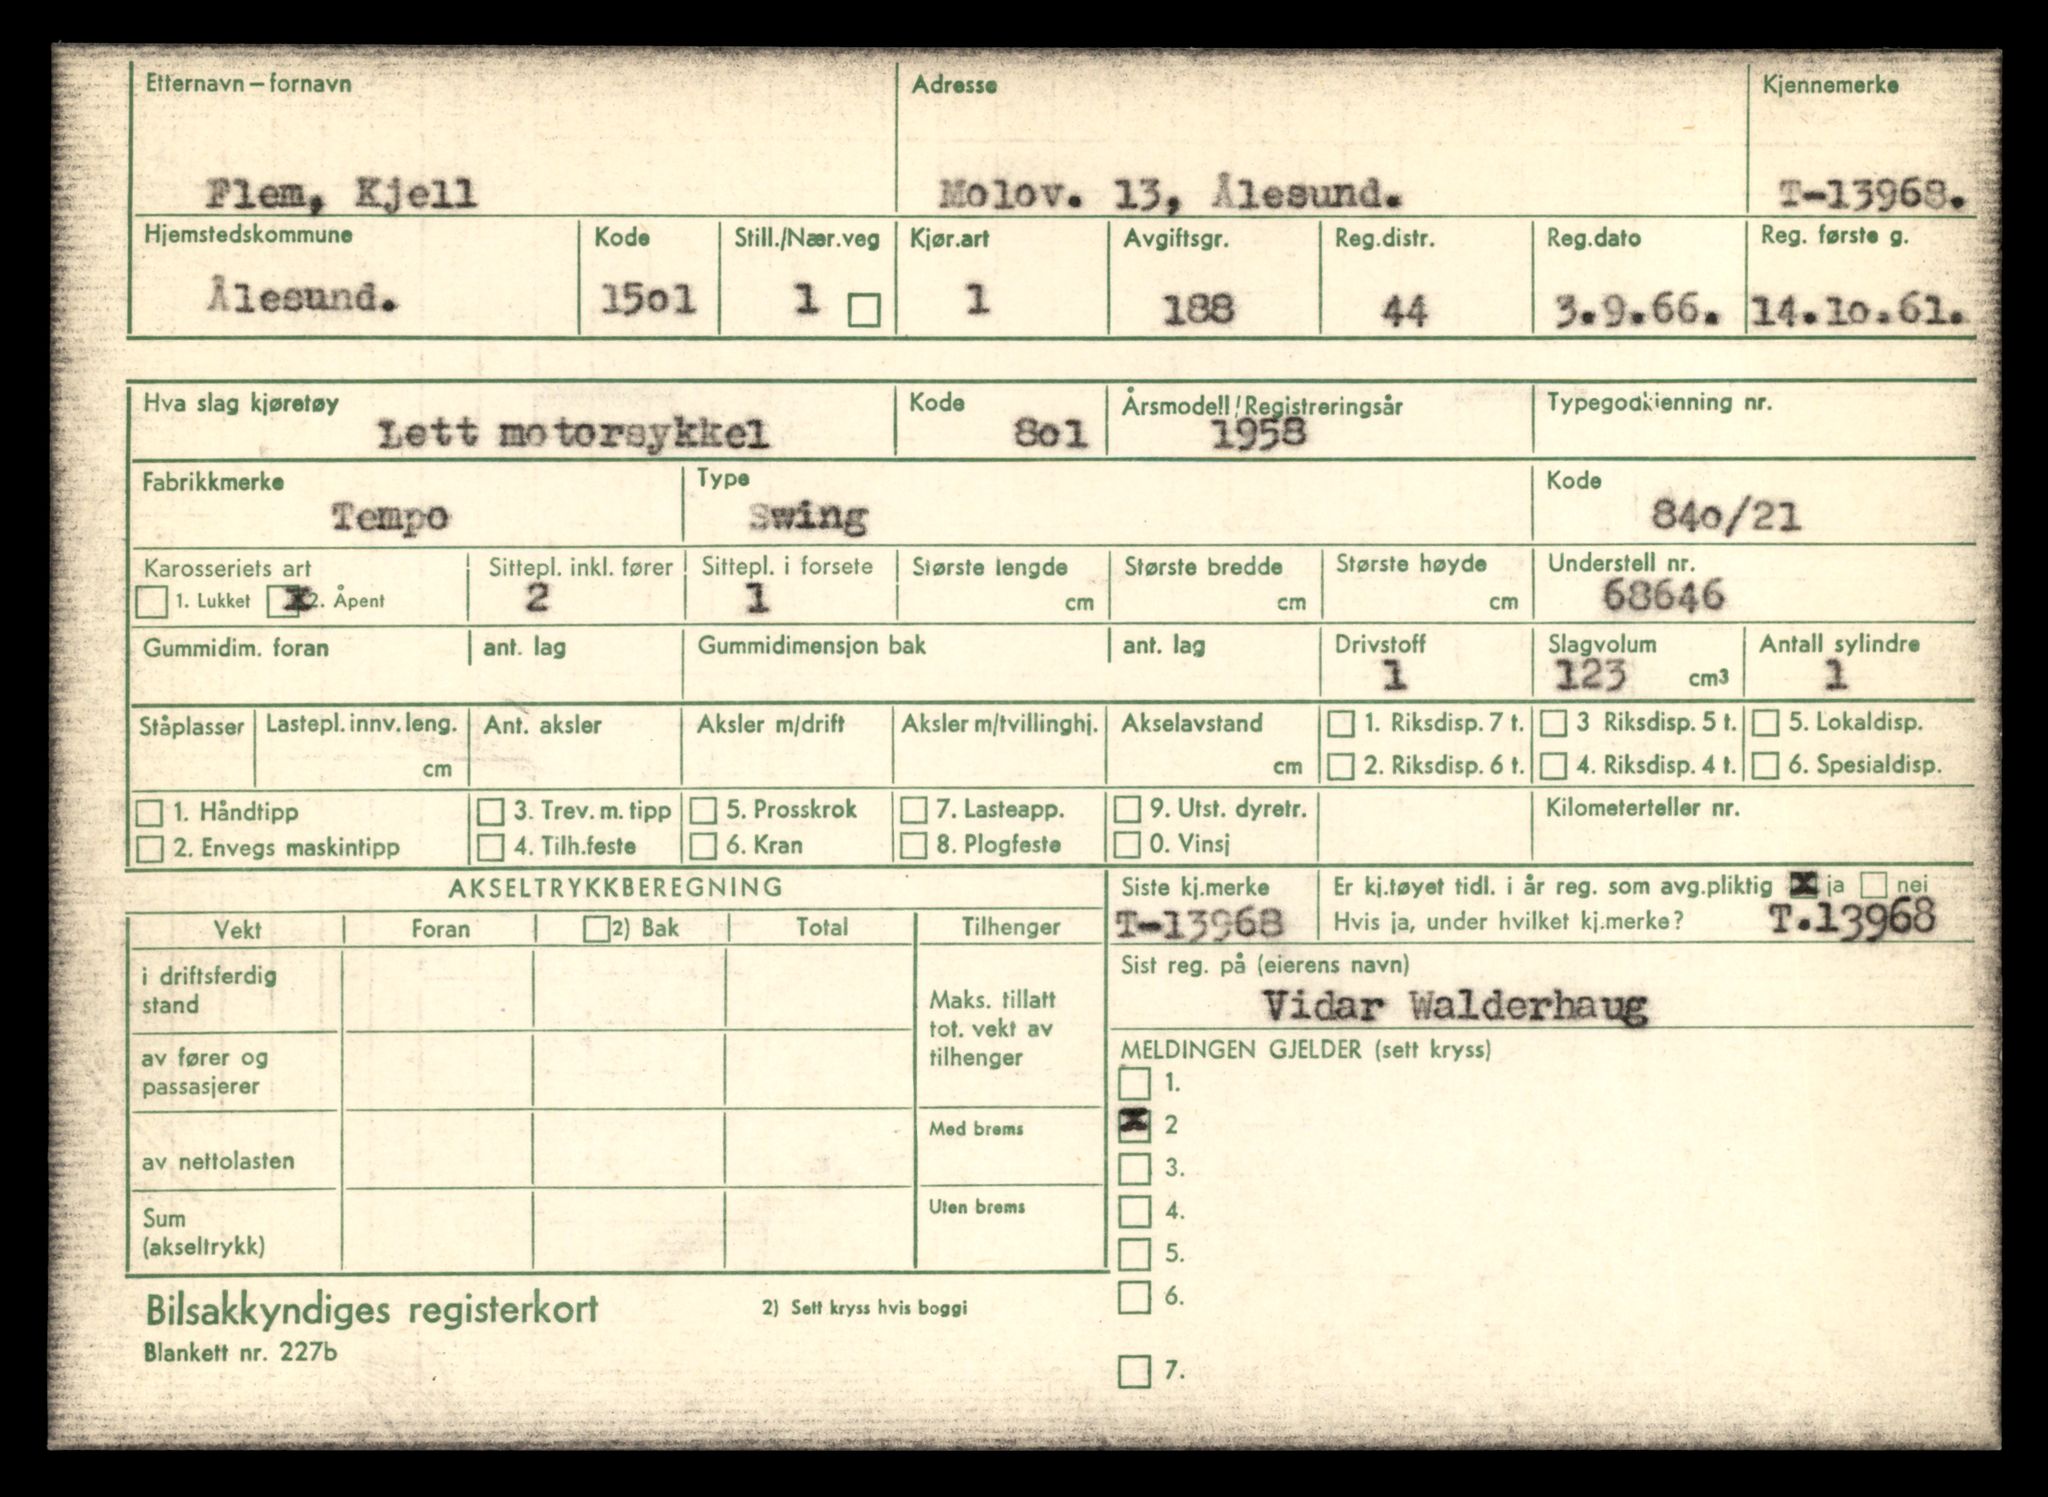 Etternavn – fornavn Adresse Kjennemerke
Flem, Kjell Molov. 13, Ålesund. T-13968.
Hjemstedskommune Kode Still./Nær.veg Kjør.art Avgiftsgr. Reg.distr. Reg.dato Reg. første g.
Ålesund. 15o1 1 1 188 44 3.9.66. 14.1o.61.
Hva slag kjøretøy Kode Årsmodell/Registreringsår Typegodkjenning nr.
Lett motorsykkel 8o1 1958
Fabrikkmerke Type Kode
Tempo Swing 84o/21
Karosseriets art Sittepl. inkl. fører Sittepl. i forsete Største lengde Største bredde Største høyde Understell nr.
1. Lukket x 2. Åpent 2 1 cm cm cm 68646
Gummidim. foran ant. lag Gummidimensjon bak ant. lag Drivstoff Slagvolum Antall sylindre
1 123 cm³ 1
Ståplasser Lastepl. innv. leng. Ant. aksler Aksler m/drift Aksler m/tvillinghj. Akselavstand 1. Riksdisp. 7 t. 3 Riksdisp. 5 t. 5. Lokaldisp.
cm cm 2. Riksdisp. 6 t. 4. Riksdisp. 4 t. 6. Spesialdisp.
1. Håndtipp 3. Trev. m. tipp 5. Prosskrok 7. Lasteapp. 9. Utst. dyretr. Kilometerteller nr.
2. Envegs maskintipp 4. Tilh.feste 6. Kran 8. Plogfeste 0. Vinsj
AKSELTRYKKBEREGNING Siste kj.merke Er kj.tøyet tidl. i år reg. som avg.pliktig x ja nei
T-13968 Hvis ja, under hvilket kj.merke? T.13968
Vekt Foran 2) Bak Total Tilhenger
Sist reg. på (eierens navn)
Vidar Walderhaug
i driftsferdig
stand
Maks. tillatt
tot. vekt av
tilhenger
av fører og
passasjerer
MELDINGEN GJELDER (sett kryss)
1.
x 2
3.
4.
5.
6.
7.
Med brems
av nettolasten
Uten brems
Sum
(akseltrykk)
Bilsakkyndiges registerkort 2) Sett kryss hvis boggi
Blankett nr. 227b